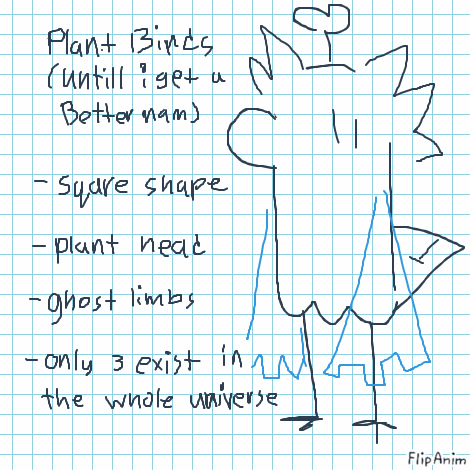 Plant Birds
(untill i get a
Better nam)
- Sqare shape
- plant head
- ghost limbs
- only 3 exist in
the whole universe
FlipAnim